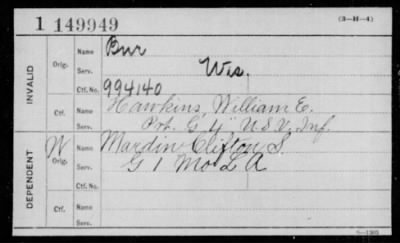 1 149949
(3-H-4)
INVALID
Orig.
Name Bur
Serv. Wis.
Ctf. No. 994140
Ctf.
Name Hawkins, William E.
Serv. Pvt. G 4" U.S.V. Inf.
DEPENDENT
W
Orig.
Name Mardin Clifton S.
Serv. G 1 Mo L A
Ctf. No.
Ctf.
Name
Serv.